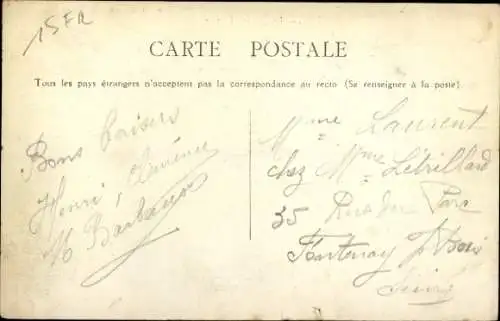 15 FR
CARTE POSTALE
Tous les pays étrangers n'acceptent pas la correspondance au recto (Se renseigner à la poste).
Bons baisers
Henri, Clémence
Mme Laurent
chez Mme Létrillard
35 Rue du Parc
Fontenay s/ Bois
Seine